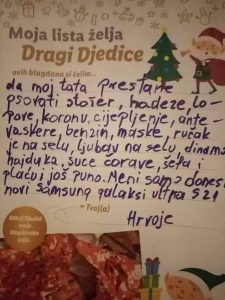 Moja lista želja
Dragi Djedice
ovih blagdana si želim...
da moj tata prestane
psovati stožer, hadeze, lo-
pove, koronu, cijepljenje, ante-
vaksere, benzin, maske, ručak
je na selu, ljubav na selu, dinamo
hajduka, suce ćorave, šefa i
plaću i još puno. Meni samo donesi
novi samsung galaksi ultra S21
Tvoj(a)
Hrvoje
Odnij Djedici
svoje
blagdanske
želje.